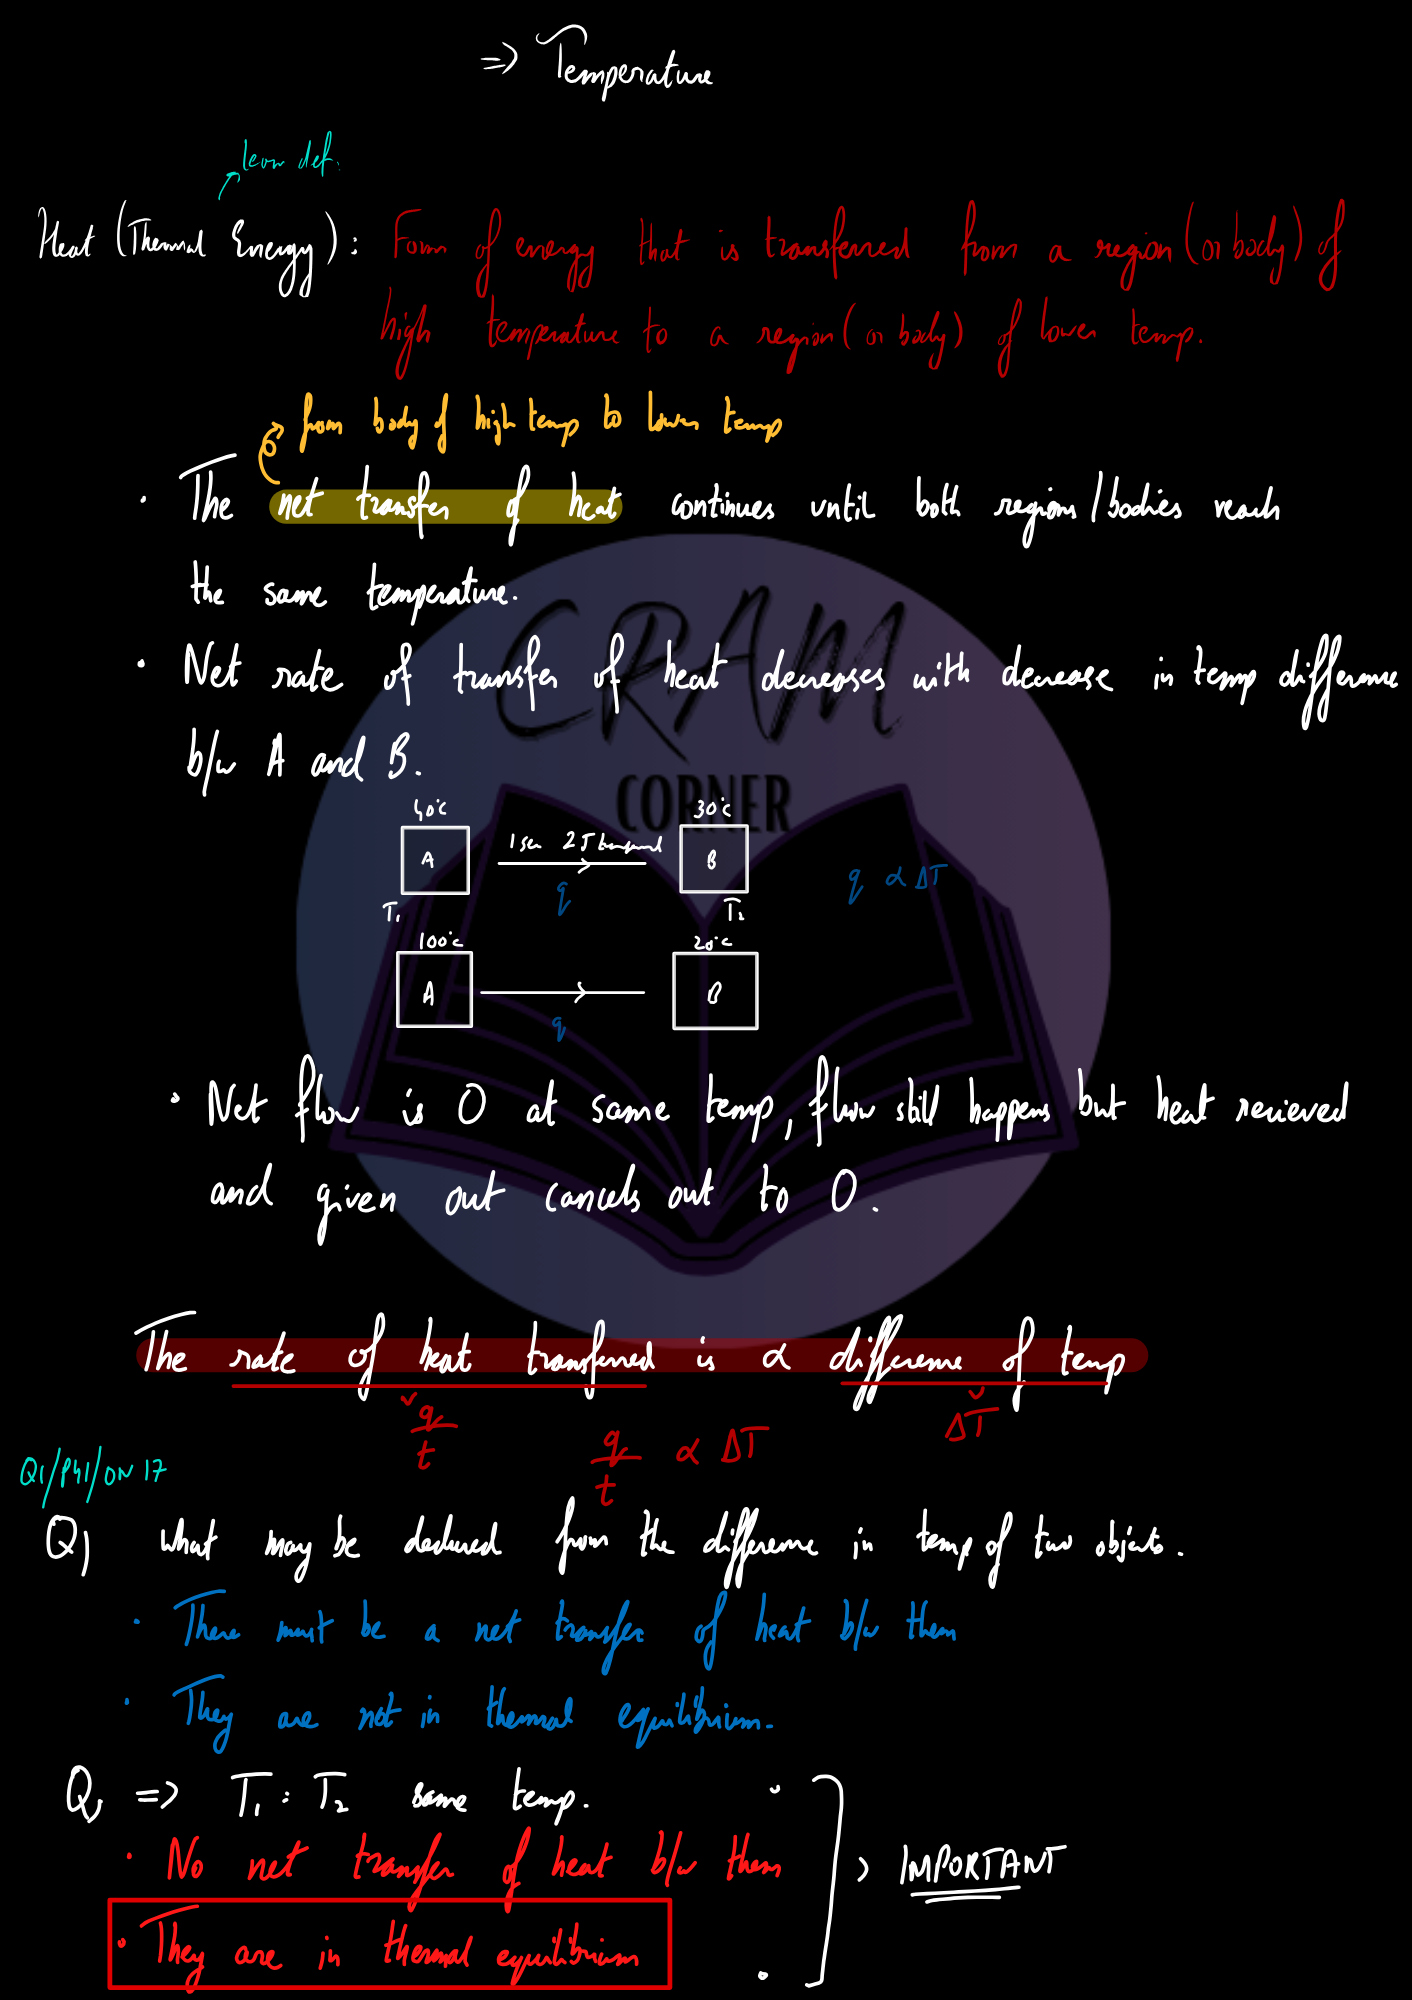 ⇒ Temperature
learn def.
Heat (Thermal Energy): Form of energy that is transferred from a region (or body) of
high temperature to a region (or body) of lower temp.
from body of high temp to lower temp
• The net transfer of heat continues until both regions/bodies reach
the same temperature.
• Net rate of transfer of heat decreases with decrease in temp difference
b/w A and B.
CRAM
CORNER
40°C 30°C
A 1 sec 2J B
q q ∝ ΔT
T₁ T₂
100°C 20°C
A B
q
• Net flow is 0 at same temp, flow still happens but heat recieved
and given out cancels out to 0.
The rate of heat transferred is ∝ difference of temp
q/t q/t ∝ ΔT ΔT
Q1/P41/ON 17
Q) what may be deduced from the difference in temp of two objects.
• There must be a net transfer of heat b/w them
• They are not in thermal equilibrium.
Q, ⇒ T₁ : T₂ same temp.
• No net transfer of heat b/w them
IMPORTANT
• They are in thermal equilibrium